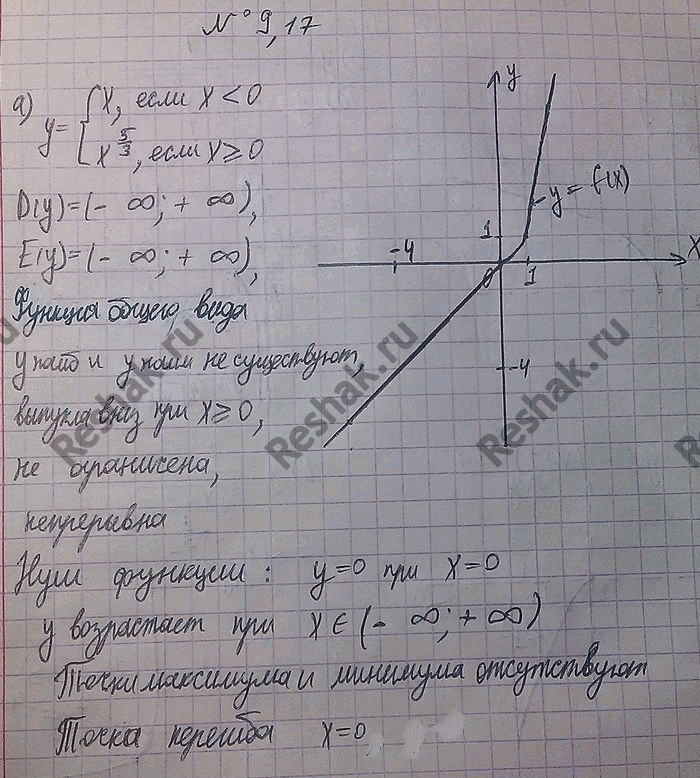 № 9,17
а) y = { x, если x < 0
x^5/3, если x ≥ 0
D(y) = (- ∞; + ∞),
E(y) = (- ∞; + ∞),
Функция общего вида
y наиб и y наим не существуют,
выпукла вниз при x ≥ 0,
не ограничена,
непрерывна
Нули функции: y = 0 при x = 0
y возрастает при x ∈ (- ∞; + ∞)
Точки максимума и минимума отсутствуют
Точка перегиба x = 0
y
y = f(x)
1
-4
0
1
X
-4
Reshak.ru
Reshak.ru
Reshak.ru